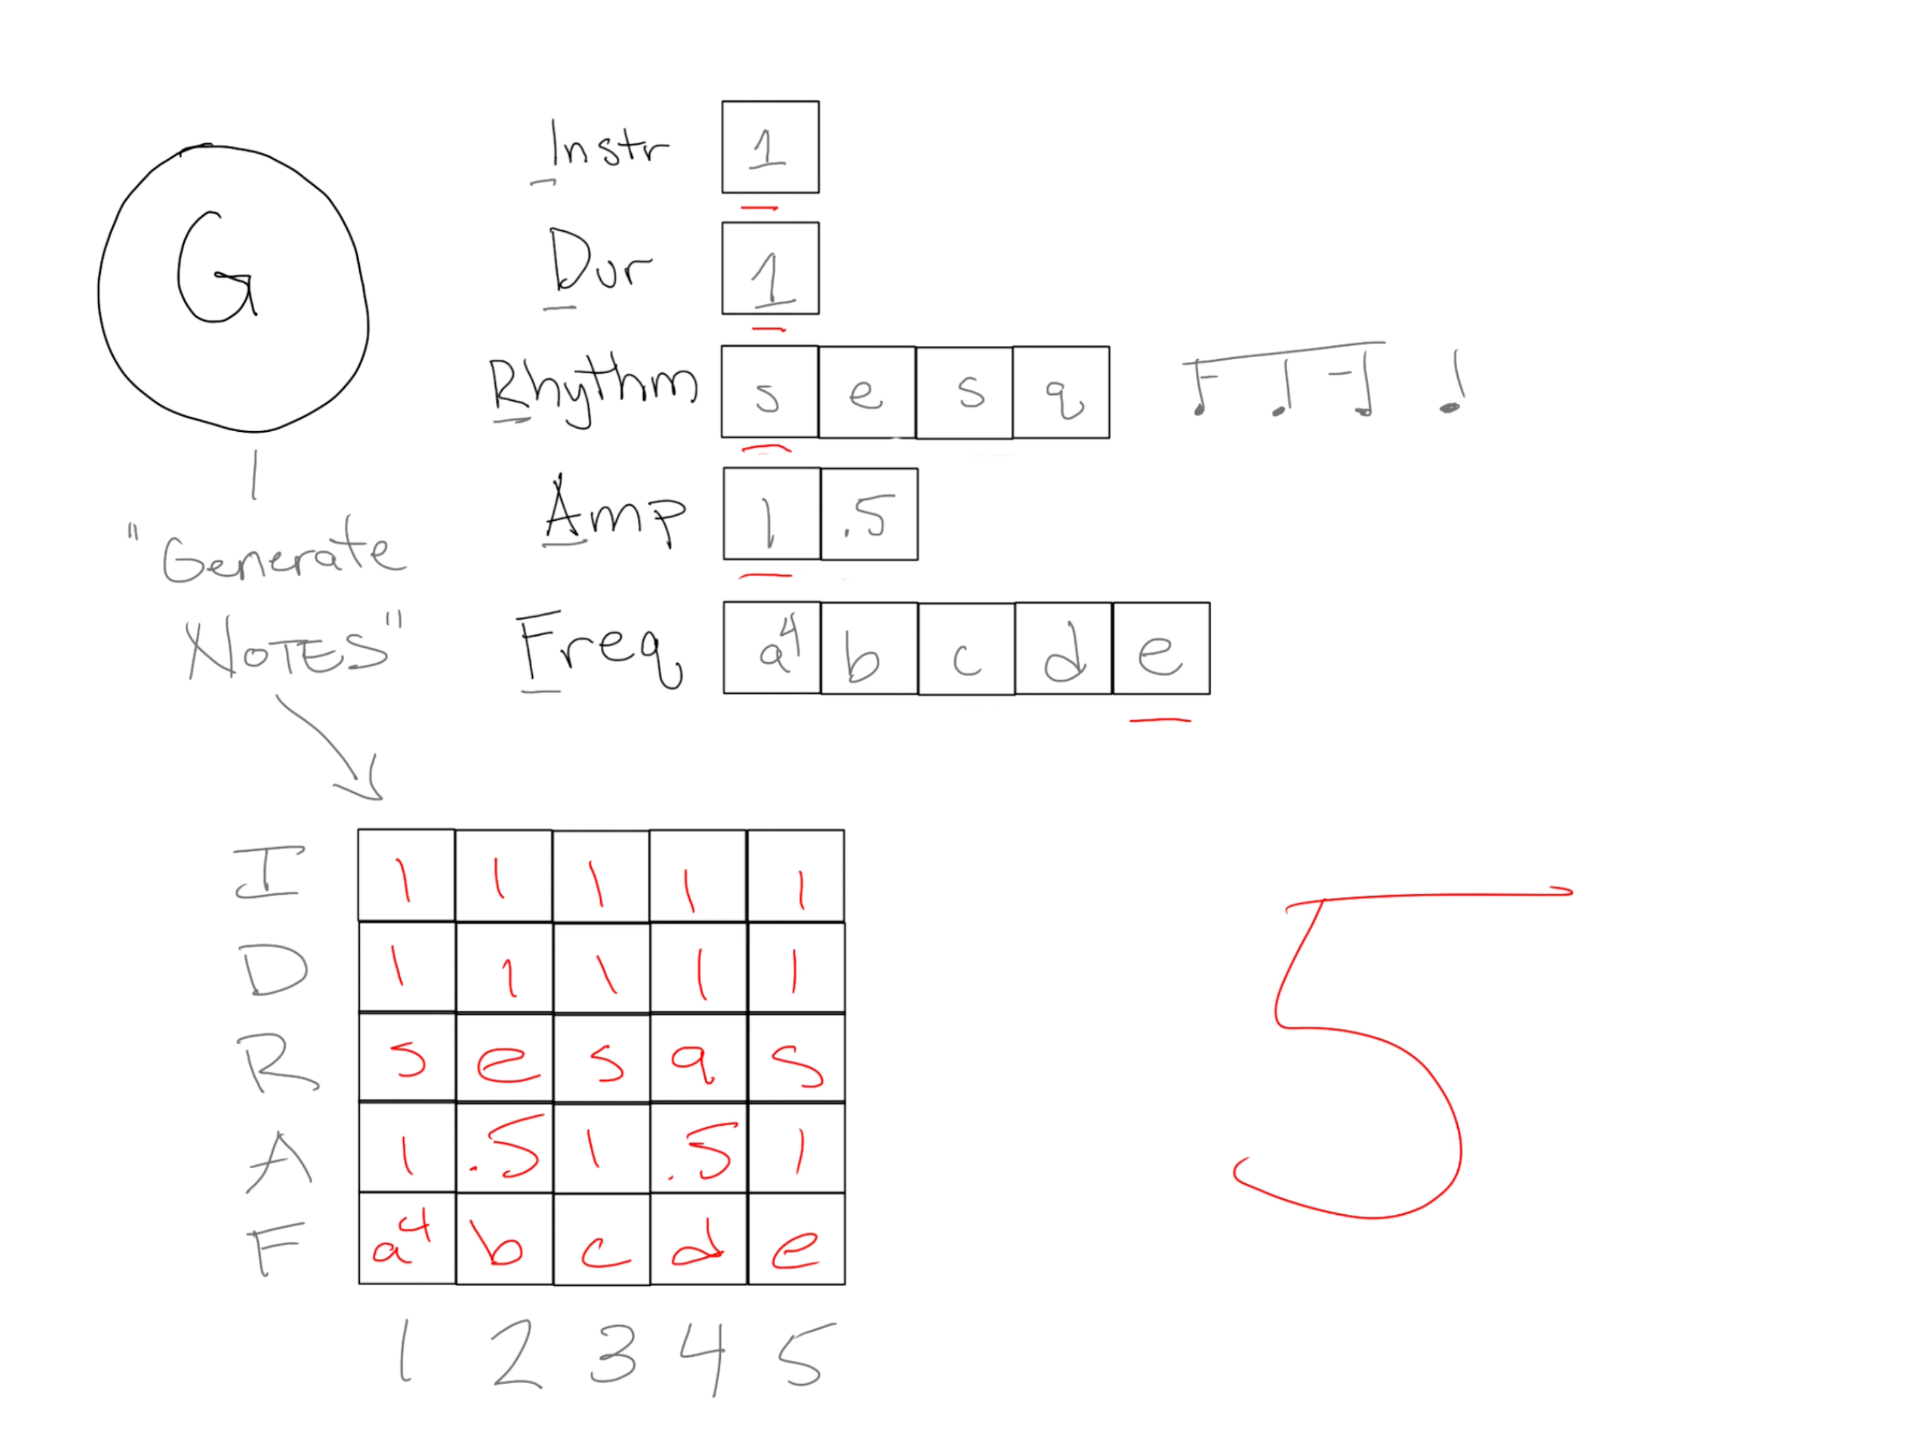 G
"Generate
NOTES"
Instr 1
Dur 1
Rhythm s e s q
Amp 1 .5
Freq a4 b c d e
I 1 1 1 1 1
D 1 1 1 1 1
R s e s q s
A 1 .5 1 .5 1
F a4 b c d e
1 2 3 4 5
5